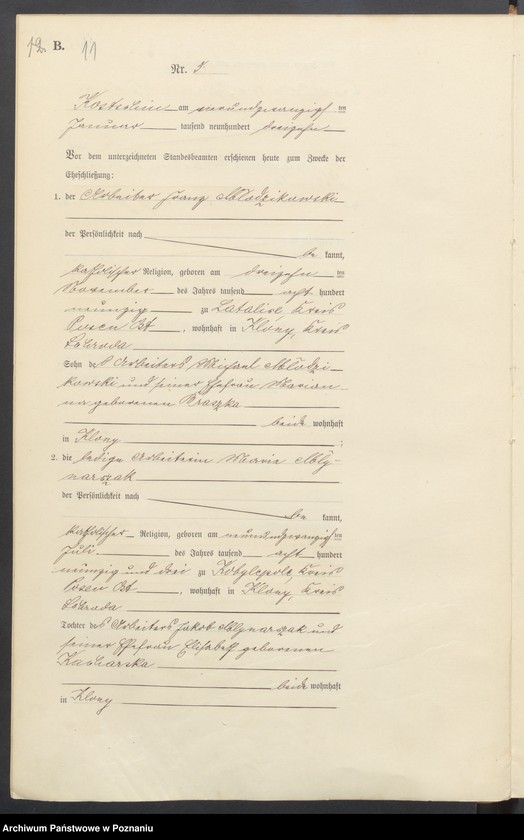 12. B. 11
Nr. 5
Kostschin am vierundzwanzigsten
Januar tausend neunhundert dreizehn
Vor dem unterzeichneten Standesbeamten erschienen heute zum Zwecke der
Eheschließung:
1. der Arbeiter Franz Mlodzikowski
der Persönlichkeit nach
be kannt,
katholischer Religion, geboren am dreizehnten
November des Jahres tausend acht hundert
neunzig zu Latalice, Kreis
Posen Ost, wohnhaft in Klony, Kreis
Schroda
Sohn des Arbeiters Michael Mlodzi-
kowski und seiner Ehefrau Marian-
na geborenen
beide wohnhaft
in Klony ;
2. die ledige Arbeiterin Marie Mly-
narzak
der Persönlichkeit nach
be kannt,
katholischer Religion, geboren am neunundzwanzigsten
Juli des Jahres tausend acht hundert
neunzig und drei zu Kobylepole, Kreis
Posen Ost, wohnhaft in Klony, Kreis
Schroda
Tochter des Arbeiters Jakob Mlynarzak und
seiner Ehefrau Elisabeth geborenen
Kucharska
beide wohnhaft
in Klony
Archiwum Państwowe w Poznaniu